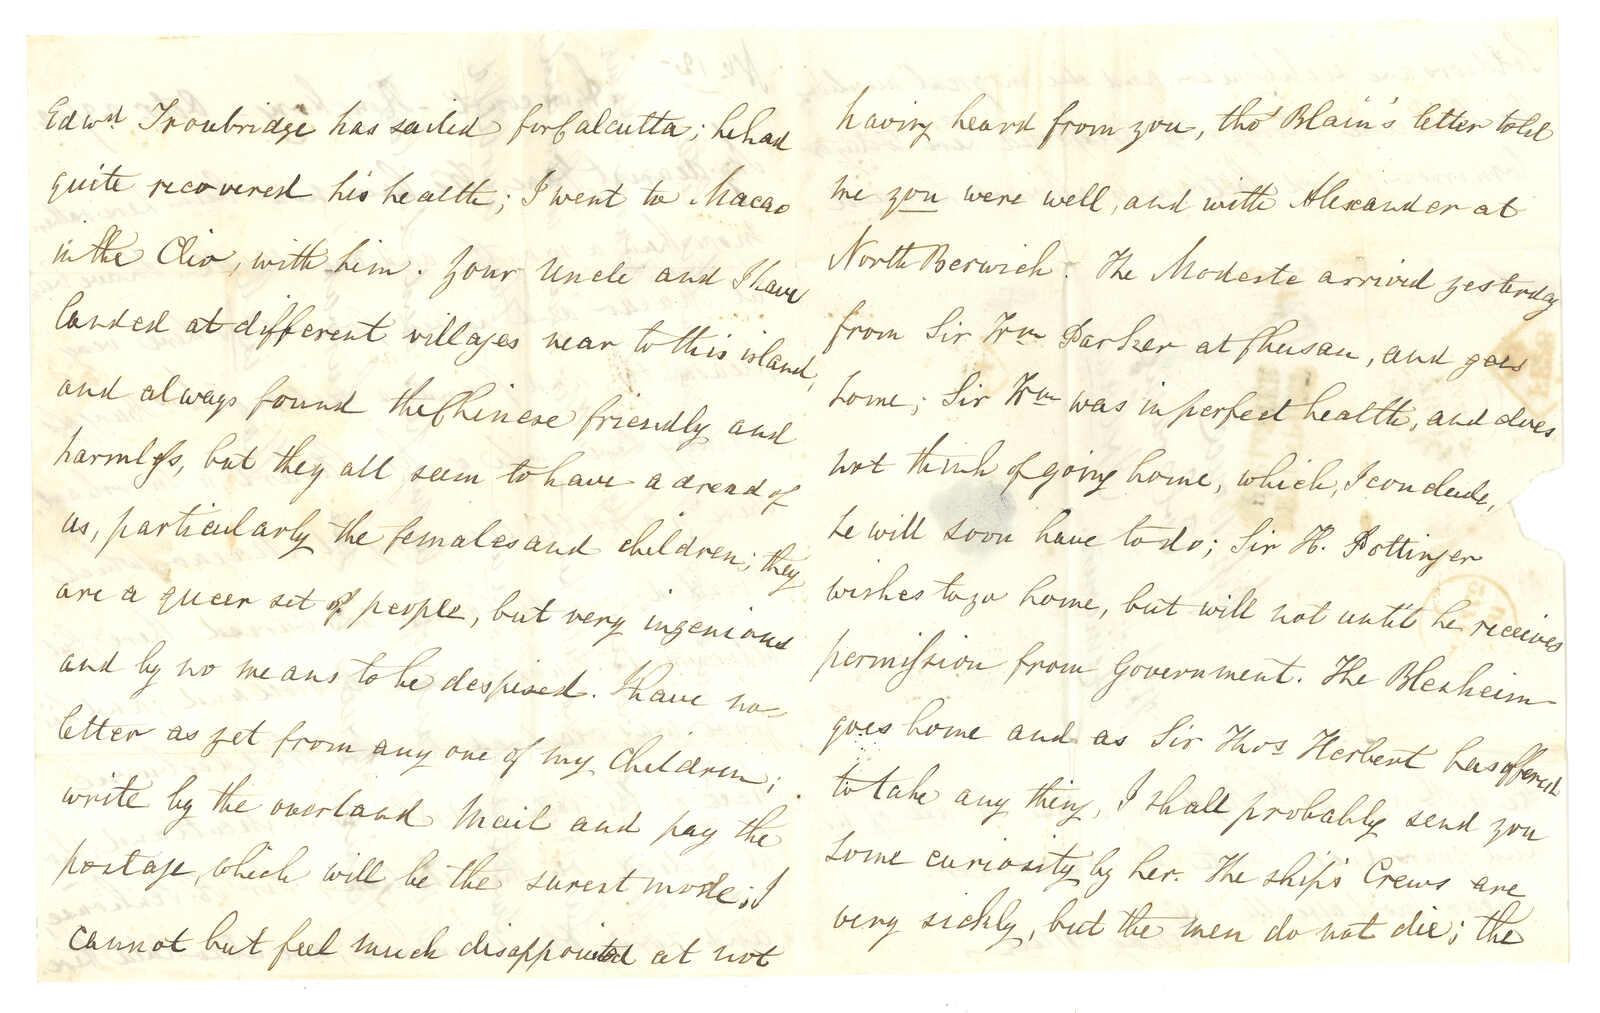 Edwd Troubridge has sailed for Calcutta; he had
quite recovered his health; I went to Macao
in the Clio, with him. Your Uncle and I have
landed at different villages near to this island,
and always found the Chinese friendly and
harmless, but they all seem to have a dread of
us, particularly the females and children; they
are a queer set of people, but very ingenious
and by no means to be despised. I have no
letter as yet from any one of my Children;
write by the overland Mail and pay the
postage, which will be the surest mode; I
cannot but feel much disappointed at not
having heard from you, tho' Blain's letter told
me you were well, and with Alexander at
North Berwick. The Modeste arrived yesterday
from Sir Wm Parker at Chusan, and goes
home; Sir Wm was in perfect health, and does
not think of going home, which, I conclude,
he will soon have to do; Sir H. Pottinger
wishes to go home, but will not until he receives
permission from Government. The Blenheim
goes home and as Sir Thos Herbert has offered
to take any thing, I shall probably send you
some curiosity by her. The ship's Crews are
very sickly, but the men do not die; the